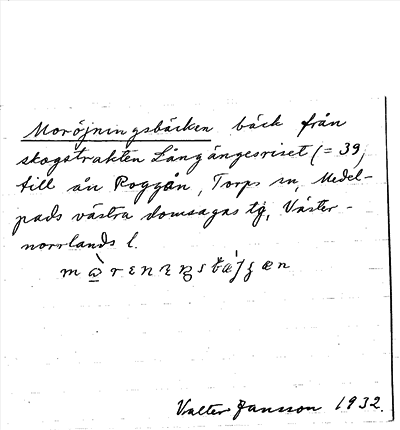 Moröjningsbäcken bäck från
skogstrakten Långängesriset (= 39,
till ån Roggån, Torps sn, Medel-
pads västra domsagas tg, Väster-
norrlands l.
Valter Jansson 1932.